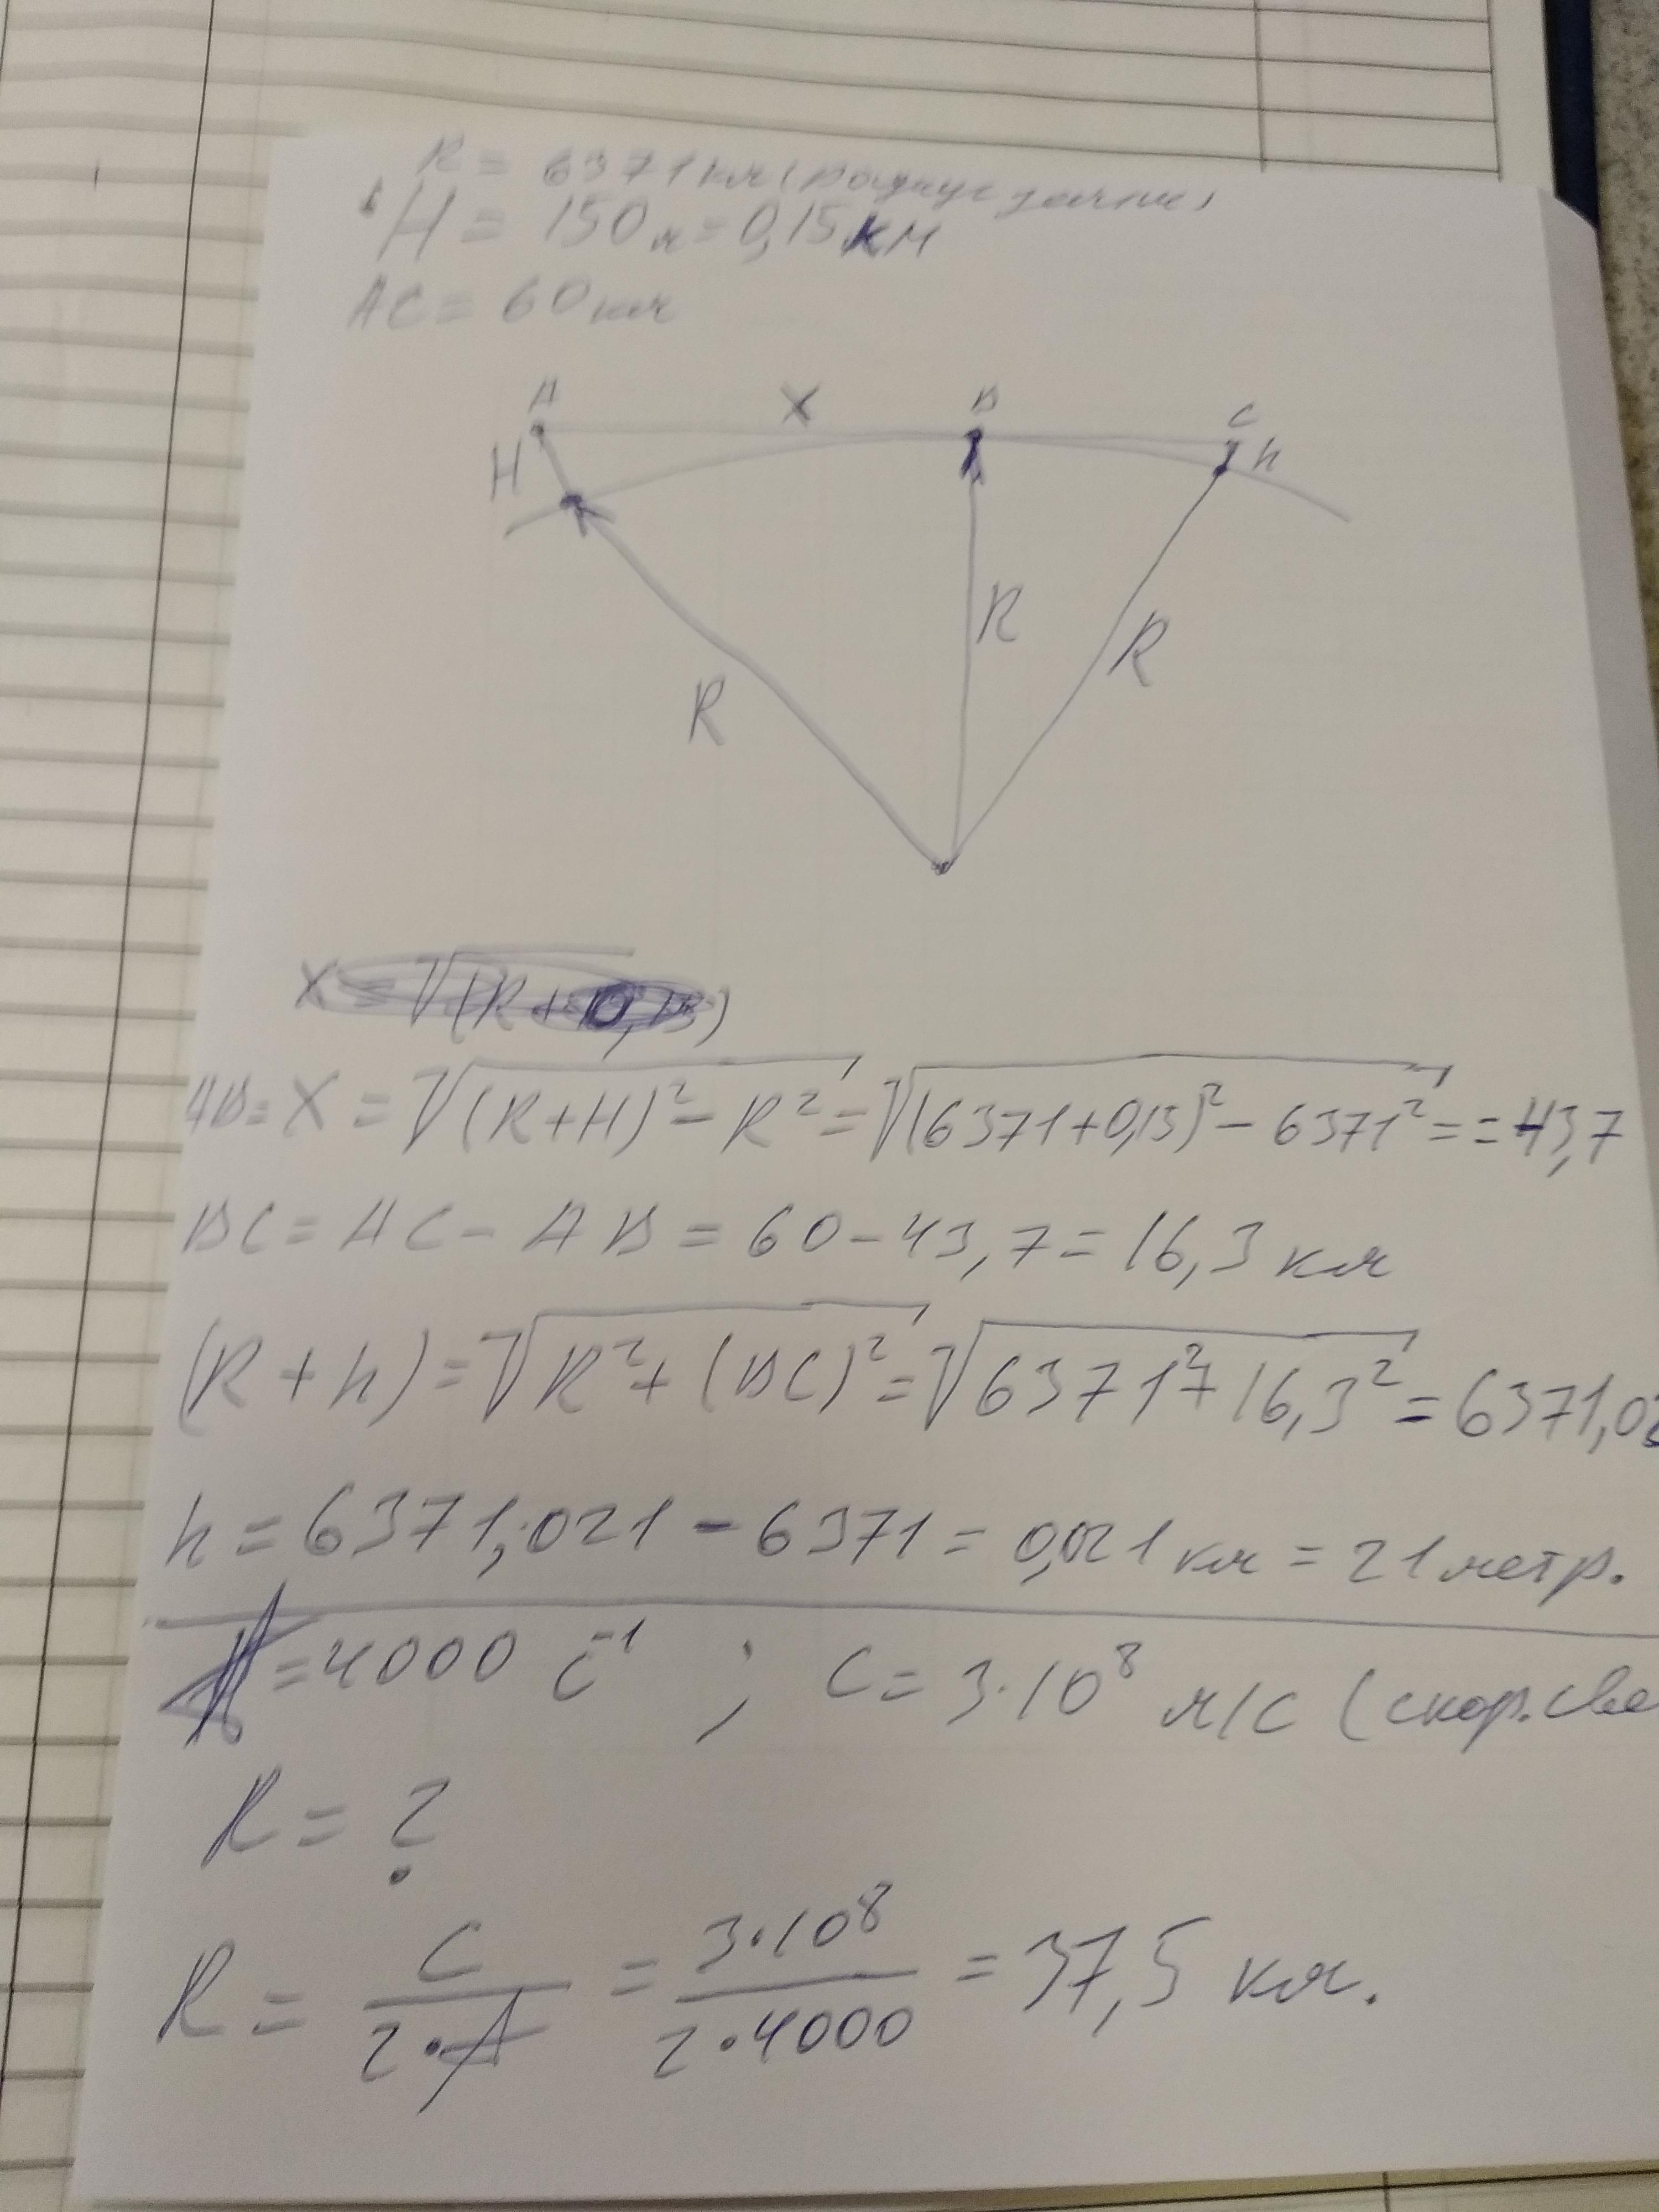 R = 6371 км (радиус земли)
H = 150 м = 0,15 км
AC = 60 км
A X B C
H h
R R R
X = √(R + 0,15)
AB = X = √(R+H)² - R² = √(6371+0,15)² - 6371² = = 43,7
BC = AC - AB = 60 - 43,7 = 16,3 км
(R + h) = √R² + (BC)² = √6371² + 16,3² = 6371,02
h = 6371,021 - 6371 = 0,021 км = 21 метр.
= 4000 c⁻¹ ; C = 3·10⁸ м/с (скор. све
R = ?
R = C / 2· = 3·10⁸ / 2·4000 = 37,5 км.